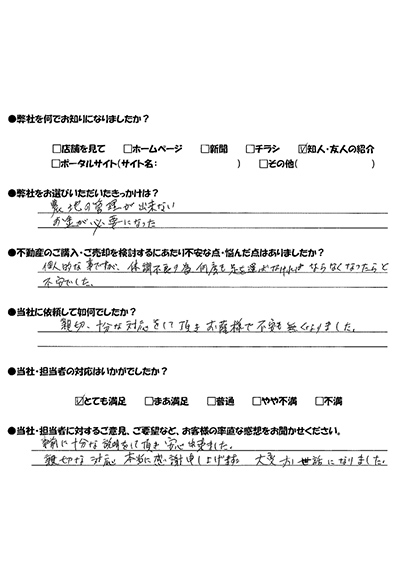 ●弊社を何でお知りになりましたか?
□店舗を見て □ホームページ □新聞 □チラシ ☑知人・友人の紹介
□ポータルサイト(サイト名: ) □その他( )
●弊社をお選びいただいたきっかけは?
農地の管理が出来ない
お金が必要になった
●不動産のご購入・ご売却を検討するにあたり不安な点・悩んだ点はありましたか?
個人的な事ですが、体調不良の為何度も足を運ばなければならなくなったらと
不安でした。
●当社に依頼して如何でしたか?
親切、十分な対応をして頂きお蔭様で不安も無くなりました。
●当社・担当者の対応はいかがでしたか?
☑とても満足 □まあ満足 □普通 □やや不満 □不満
●当社・担当者に対するご意見、ご要望など、お客様の率直な感想をお聞かせください。
事前に十分な説明をして頂き安心出来ました。
親切な対応 本当に感謝申し上げます 大変お世話になりました。